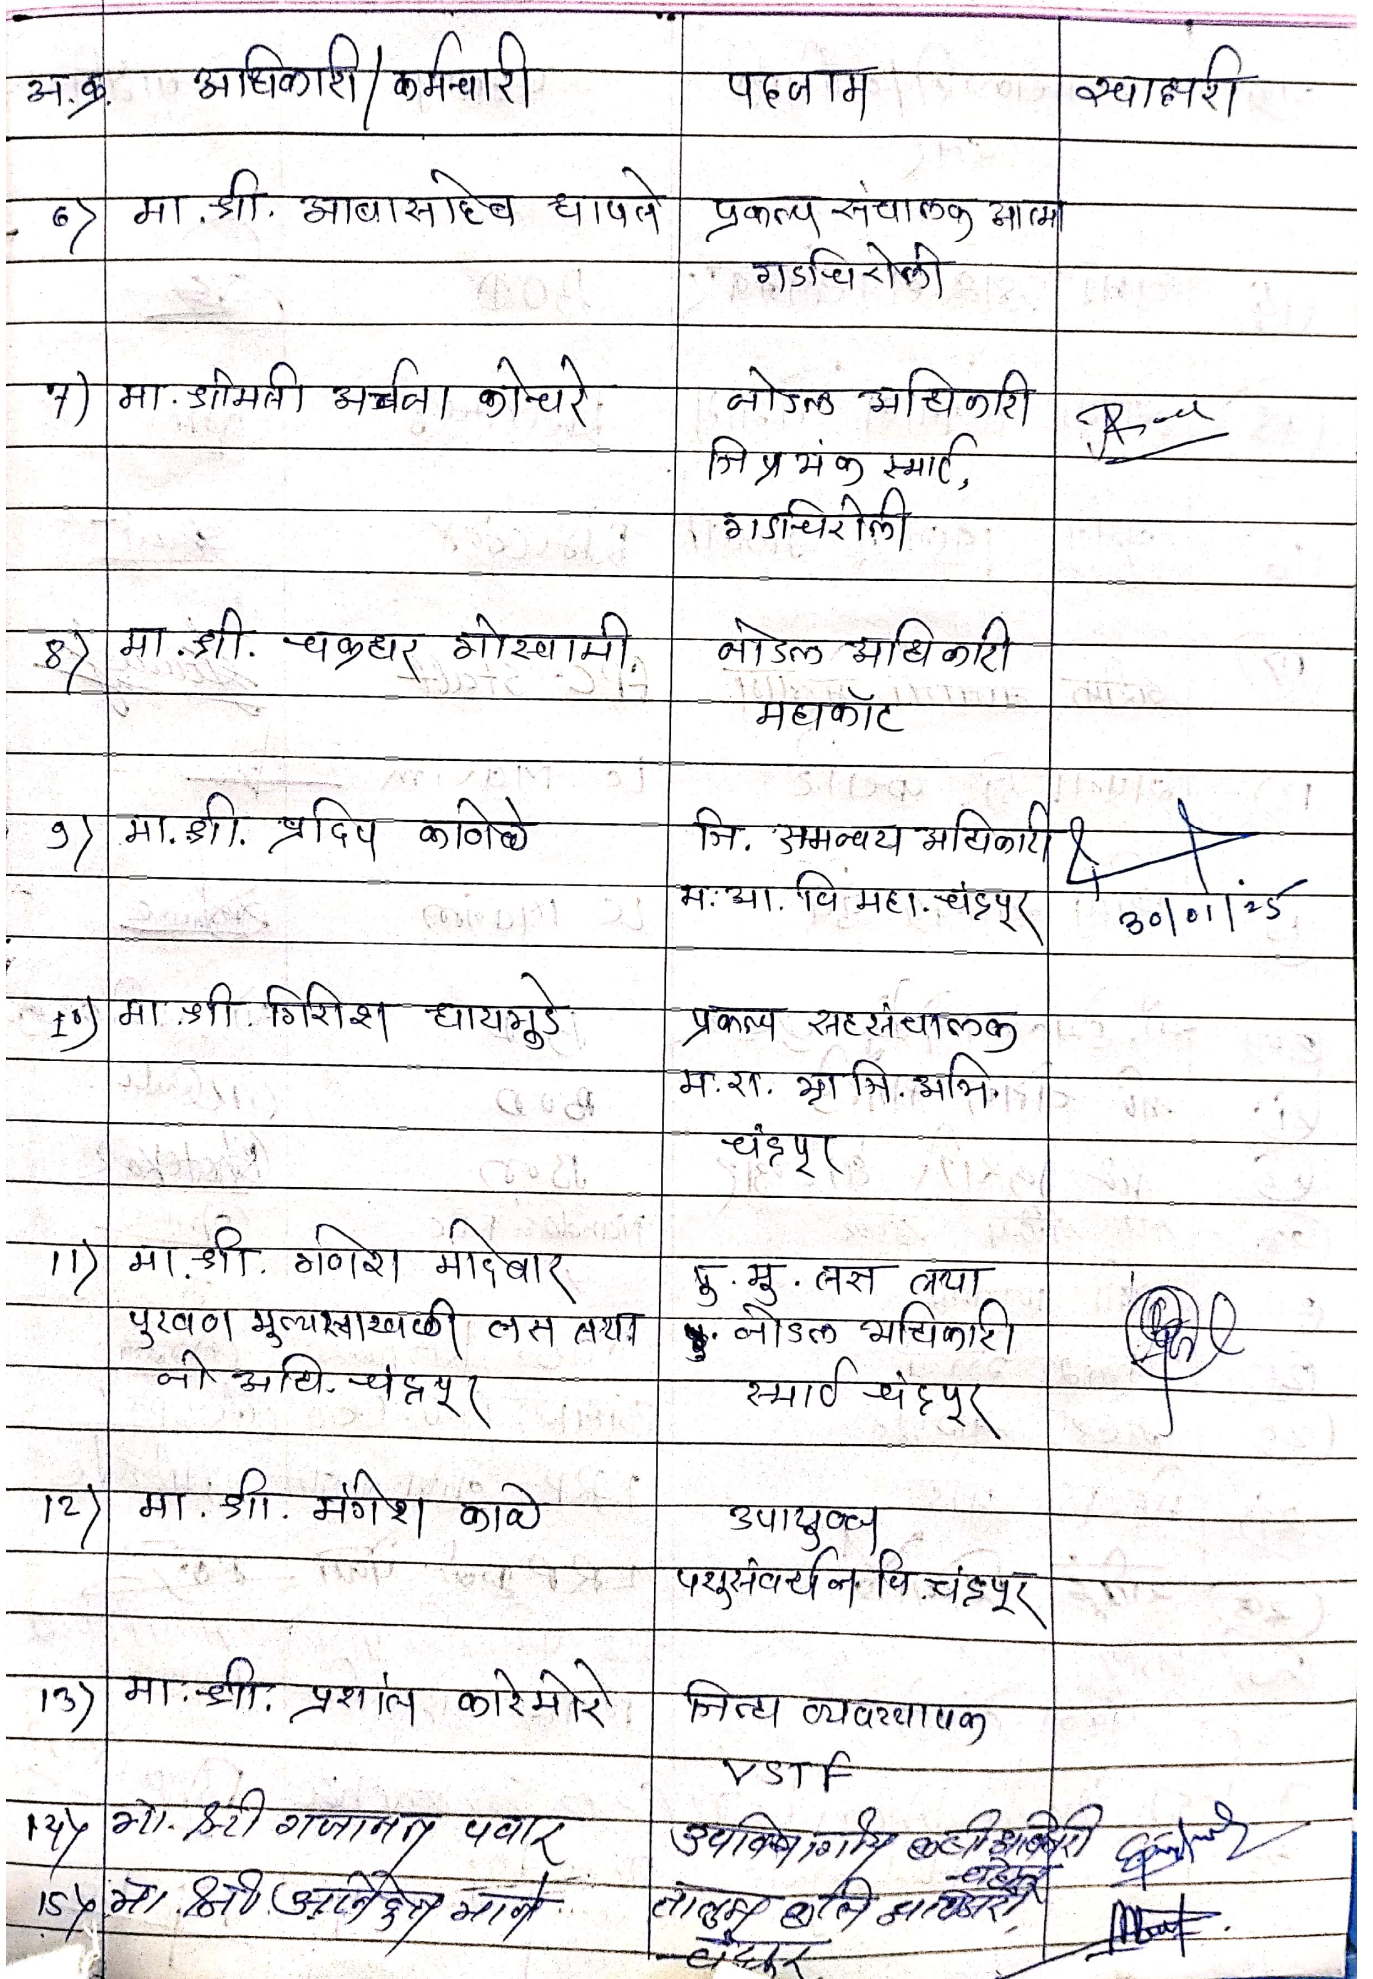 अ.क्र. अधिकारी/कर्मचारी पदनाम स्वाक्षरी
6) मा.श्री. आबासाहेब धापते प्रकल्प संचालक आत्मा
गडचिरोली
7) मा.श्रीमती अर्चना कोचरे नोडल अधिकारी
जि प्र अं क स्मार्ट,
गडचिरोली
8) मा.श्री. चक्रधर गोस्वामी. नोडल अधिकारी
महाकॉट
9) मा.श्री. प्रदिप काठोळे जि. समन्वय अधिकारी
म.आ.वि महा.चंद्रपूर 30/01/25
10) मा.श्री. गिरीश धायगुडे प्रकल्प सहसंचालक
म.रा. ग्रा जि.अभि.
चंद्रपूर
11) मा.श्री. गणेश मादेवार पु.मु.तज्ञ तथा
पुरवठा मुल्यसाखळी तज्ञ तथा नोडल अधिकारी
नो अधि.चंद्रपूर स्मार्ट चंद्रपूर
12) मा.श्री. मंगेश काळे उपायुक्त
पशुसंवर्धन.वि.चंद्रपूर
13) मा.श्री. प्रशांत कारेमोरे जिल्हा व्यवस्थापक
VSTF
14) मा.श्री गजानन पवार उपविभागीय कृषी अधिकारी
चंद्रपूर
15) मा.श्री माने तालुका कृषि अधिकारी,
चंद्रपूर